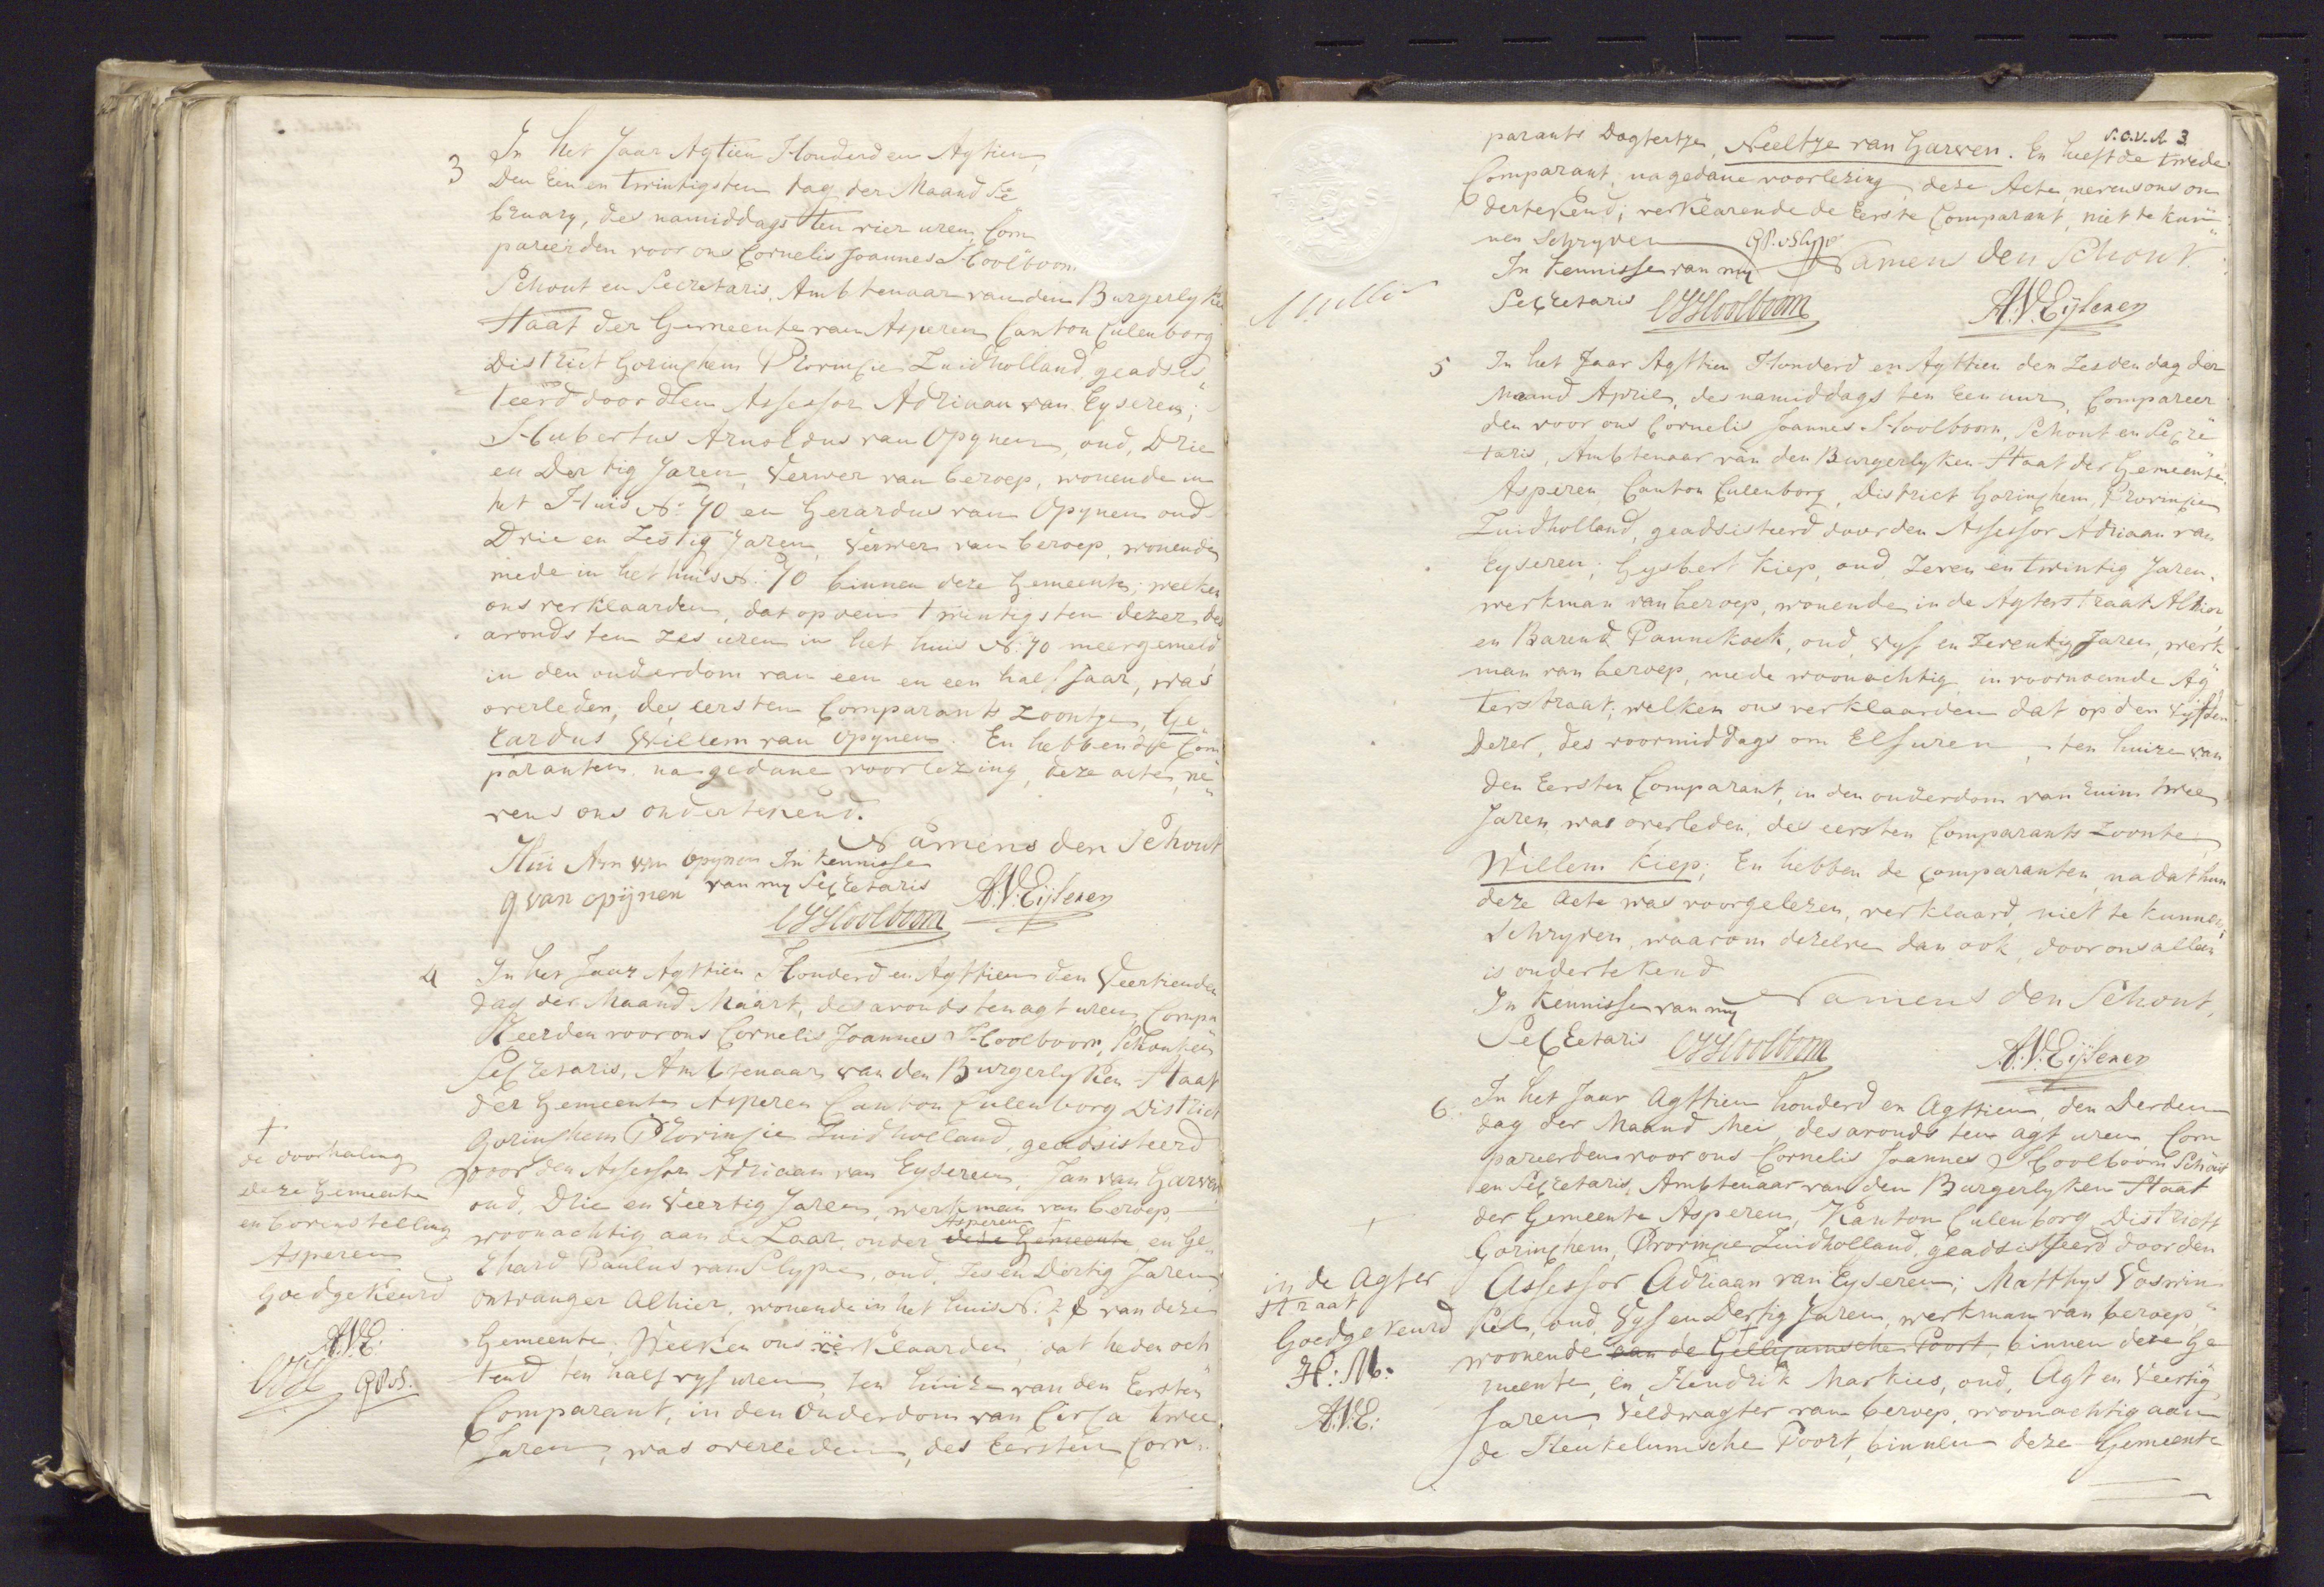 3
In het Jaar Agtien Honderd en Agtien
Den Een en twintigsten dag der Maand Fe
bruary, des namiddags ten vier uren, Com
pareerden voor ons Cornelis Joannes Hoolboom
Schout en Secretaris, Ambtenaar van den Burgerlyken
Staat der Gemeente van Asperen Canton Culenborg
District Gorinchem Provincie Zuidholland, geadsis"
teerd door den Assessor Adriaan van Eyseren;
Hubertus Arnoldus van Opynen, oud, Drie
en Dertig Jaren, Verwer van beroep, wonende in
het Huis No. 70 en Gerardus van Opynen oud
Drie en Zestig Jaren, Verwer van beroep, wonende
mede in het huis No. 70 binnen deze Gemeente; welken
ons verklaarden, dat op den twintigsten dezer des
avonds ten zes uren in het huis No. 70 meergemeld
in den ouderdom van een en een half Jaar, was
overleden, des eersten Comparants Zoontje, Ge"
rardus Willem van Opynen. En hebben de Com
paranten na gedane voorlezing, deze acte, ne"
vens ons ondertekend.
Namens den Schout
Hui Arn van Opynen In kennisse
g van opijnen van my Secretaris A.V. Eijseren
CJHoolboom
4
In het Jaar Agttien Honderd en Agttien den Veertienden
dag der Maand Maart, des avonds ten agt uren, Compa
Reerden voor ons Cornelis Joannes Hoolboom, Schout en
Secretaris, Ambtenaar van den Burgerlyken Staat
der Gemeente Asperen Canton Culenborg District
Gorinchem Provincie Zuidholland, geadsisteerd
voor den Assessor Adriaan van Eyseren, Jan van Garwen
oud, Drie en Veertig Jaren, werkman van beroep,
Asperen +
woonachtig aan de Laar, onder deze Gemeente en Ge"
rhard Paulus van Slype, oud, Zes en Dertig Jaren
ontvanger Alhier, wonende in het huis No. 28 van deze
Gemeente, Welken ons verklaarden, dat heden och
tend ten half vyf uren, ten huize van den Eersten
Comparant, in den Ouderdom van Circa twee
Jaren, was overleden, des Eersten Com"
+
de doorhaling
deze Gemeente
en bovenstelling
Asperen
Goedgekeurd
A.V.E.
CJH GPvS.
S.C.V.A. 3
parants Dogtertje, Neeltje van Garwen. En heeft de twede
Comparant, na gedane voorlezing, deze Acte, nevens ons on
dertekend; verklarende de Eerste Comparant, niet te kun"
nen Schryven GP.vSlype
In kennisse van my Namens den Schout.
Secretaris CJHoolboom A.V. Eijseren
5
In het Jaar Agttien Honderd en Agttien den Zesden dag der
Maand April, des namiddags ten Een uur, Compareer
den voor ons Cornelis Joannes Hoolboom, Schout en Secre"
taris, Ambtenaar van den Burgerlyken Staat der Gemeente
Asperen Canton Culenborg, District Gorinchem, Provincie
Zuidholland, geadsisteerd door den Assessor Adriaan van
Eyseren; Gysbert Kiep, oud, Zeven en twintig Jaren,
werkman van beroep, wonende in de Agterstraat Alhier,
en Barend Pannekoek, oud, vyf en Zeventig Jaren, werk
man van beroep, mede woonachtig in voornoemde Ag"
terstraat; welken ons verklaarden dat op den Vyfden
Dezer, des voormiddags om Elf uren, ten huize van
den Eersten Comparant, in den ouderdom van ruim twee
Jaren, was overleden, des eersten Comparants Zoontje,
Willem Kiep; En hebben de Comparanten, nadat hun
deze Acte was voorgelezen, verklaard, niet te kunnen
Schryven, waarom dezelve dan ook, door ons alleen
is ondertekend
In Kennisse van my Namens den Schout,
Secretaris CJHoolboom A.V. Eijseren
6.
In het Jaar Agttien honderd en Agttien, den Derden
dag der Maand Mei, des avonds ten agt uren, Com
pareerden voor ons Cornelis Joannes Hoolboom Schout
en Secretaris, Ambtenaar van den Burgerlyken Staat
der Gemeente Asperen, Kanton Culenborg District
Gorinchem, Provincie Zuidholland, geadsisteerd door den
Assessor Adriaan van Eyseren; Matthys Voswin
kel, oud, Vyf en Dertig Jaren, werkman van beroep,
woonende aan de Gellicumsche Poort, binnen deze Ge
meente, en, Hendrik Markies, oud, Agt en Veertig
Jaren, Veldwagter van beroep, woonachtig aan
de Heukelumsche Poort, binnen deze Gemeente
+
in de Agter
straat
Goedgekeurd
H: M:
A.V.E: